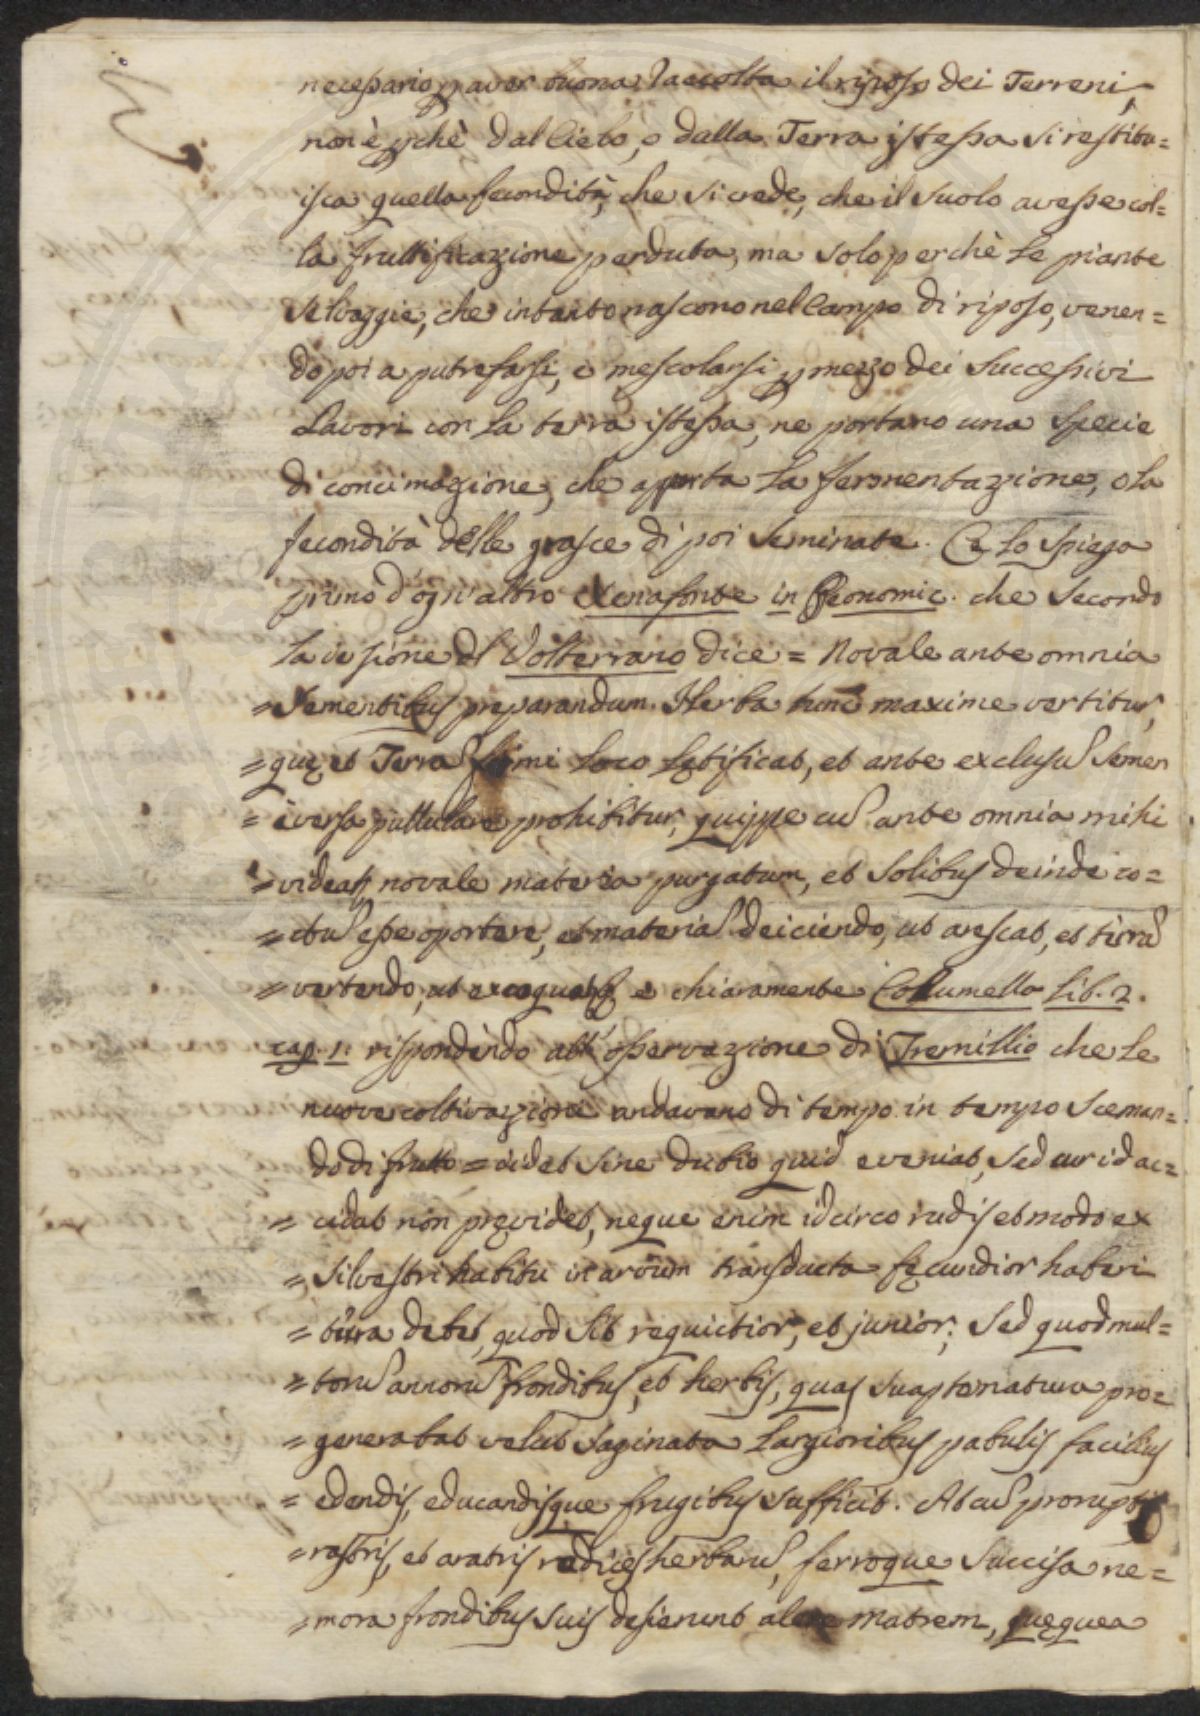 necessario p aver buona Raccolta il riposo dei Terreni,
non è pchè dal Cielo, o dalla Terra istessa si restitu=
isca quella fecondità, che si crede, che il suolo avesse col=
la fruttificazione perduta, ma solo perchè le piante
selvaggie, che intanto nascono nel Campo di riposo, venen=
do poi a putrefarsi, e mescolarsi p mezzo dei successivi
Lavori con la terra istessa, ne portano una specie
di concimazione, che aporta la fermentazione, e la
fecondità delle grasce di poi seminate. Ce lo spiega
primo d'ogn'altro Xenafonte in Œconomic. che secondo
la versione del Volterrano dice = Novale ante omnia
= sementibus preparandum. Herba tunc maxime vertitur,
= quę et Terrã fimi loco lętificat, et ante exclusũ semen
= èversa pullulare prohibitur, quippe cũ ante omnia mihi
= videatr novale materia purgatum, et solibus deinde co=
= ctũ esse oportere, et materiã deiciendo, ut arescat, et terrã
= vertendo, ut excoquatr e chiaramente Collumella lib. 2.
cap. 1: rispondendo all'osservazione di Tremillio che le
nuove coltivazioni andavano di tempo in tempo sceman=
do di frutto = videt sine dubio quid eveniat, sed cur id ac=
= cidat non pręvidet, neque enim idcirco rudis et modo ex
= silvestri habitu in arvum transducta fęcundior haberi
= tura debet, quod sit requietior, et junior; sed quod mul=
= torũ annorũ frondibus, et herbis, quas suapte natura pro=
= generabat velut saginata largioribus pabulis facilius
= edendis, educandisque frugibus sufficit. At cũ proruptis
= rastris, et aratris radices herbarũ, ferroque succisa ne=
= mora frondibus suis desierunt alere matrem, quęque a